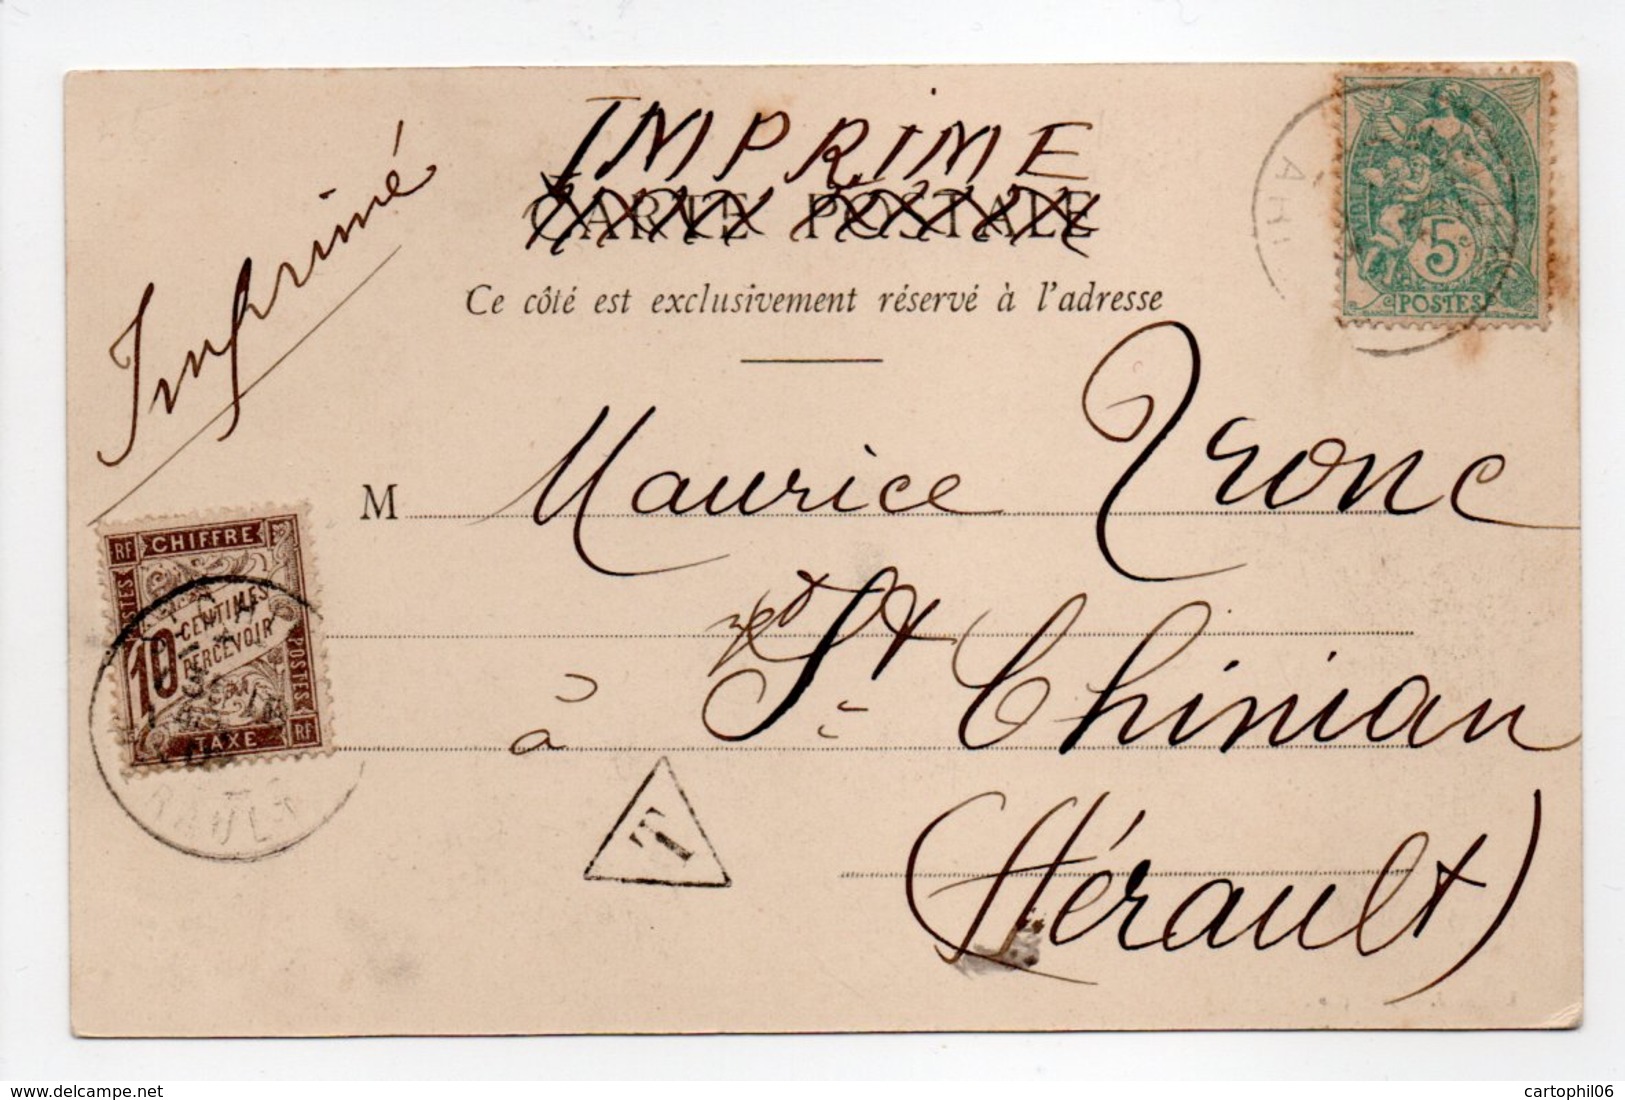 IMPRIME
Imprimé
CARTE POSTALE
Ce côté est exclusivement réservé à l'adresse
5c
POSTES
M Maurice Tronc
RF CHIFFRE
POSTES
10 CENTIMES
À PERCEVOIR
POSTES
TAXE RF
à St Chinian
T
(Hérault)
RAULT
cartophil06